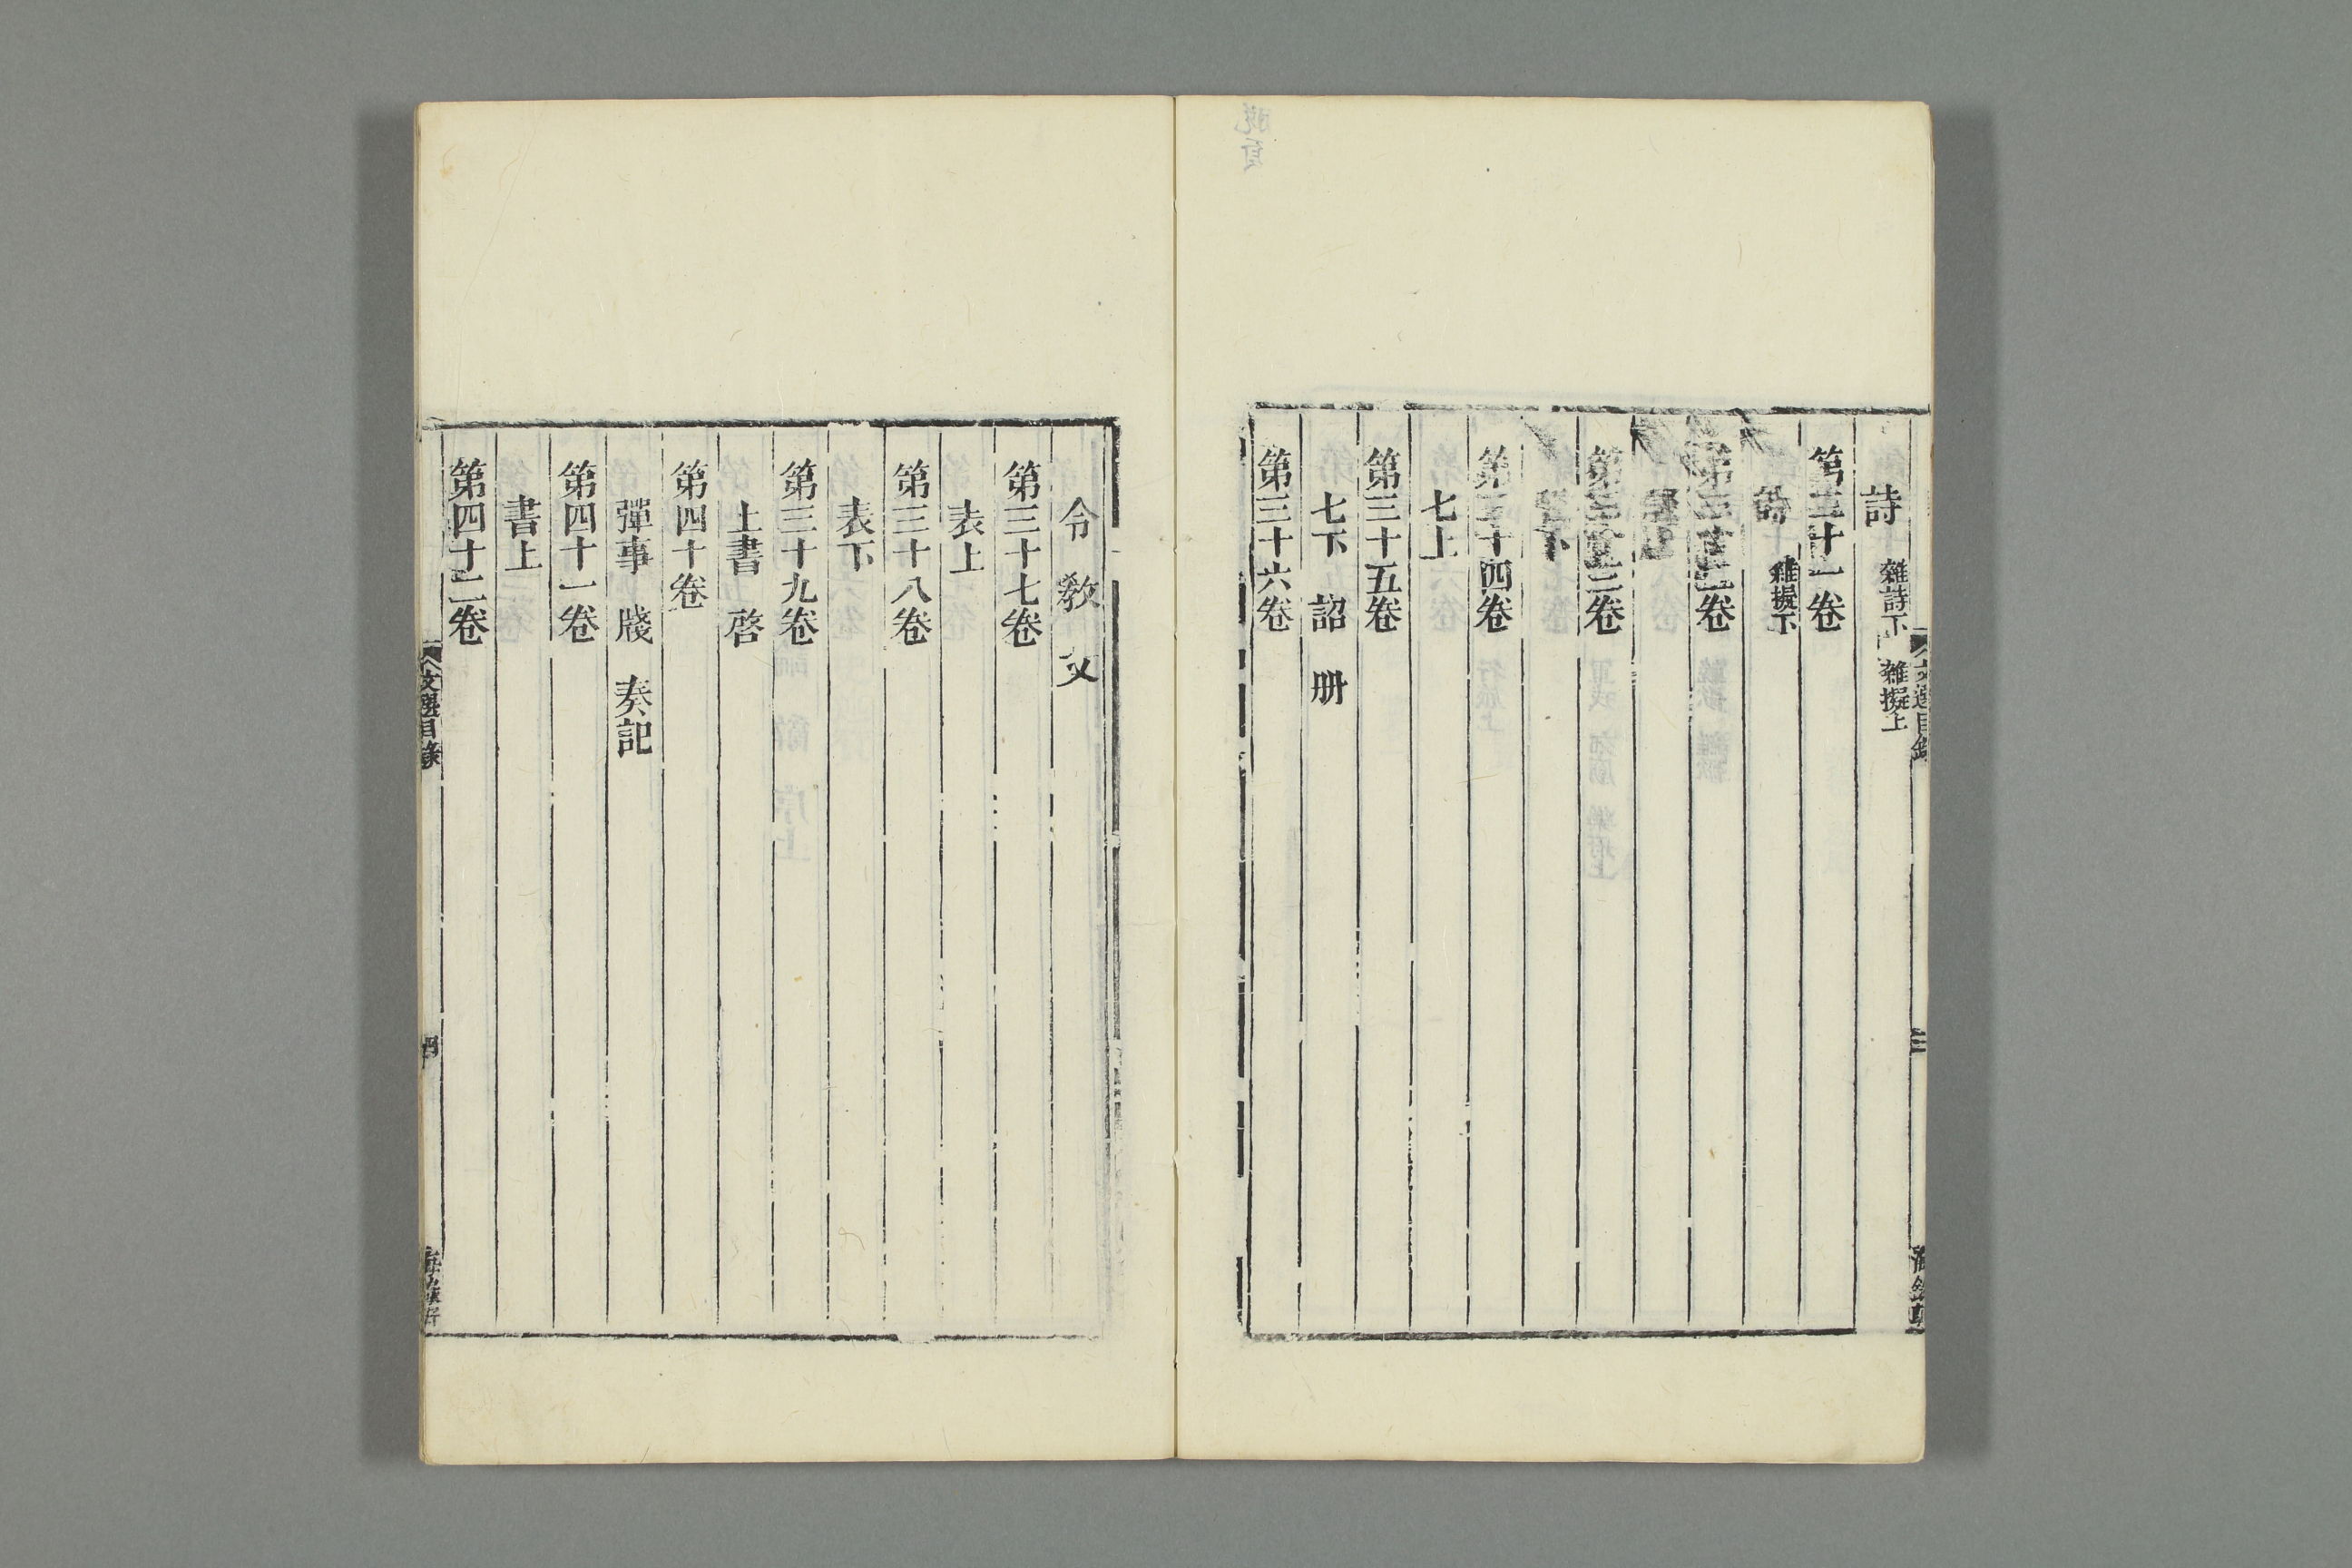 詩 雜詩下 雜擬上
第三十一卷
詩 雜擬下
第三十二卷
騷上
第三十三卷
騷下
第三十四卷
七上
第三十五卷
七下 詔 册
第三十六卷
令 教 文
第三十七卷
表上
第三十八卷
表下
第三十九卷
上書 啓
第四十卷
彈事 牋 奏記
第四十一卷
書上
第四十二卷
文選目錄
四